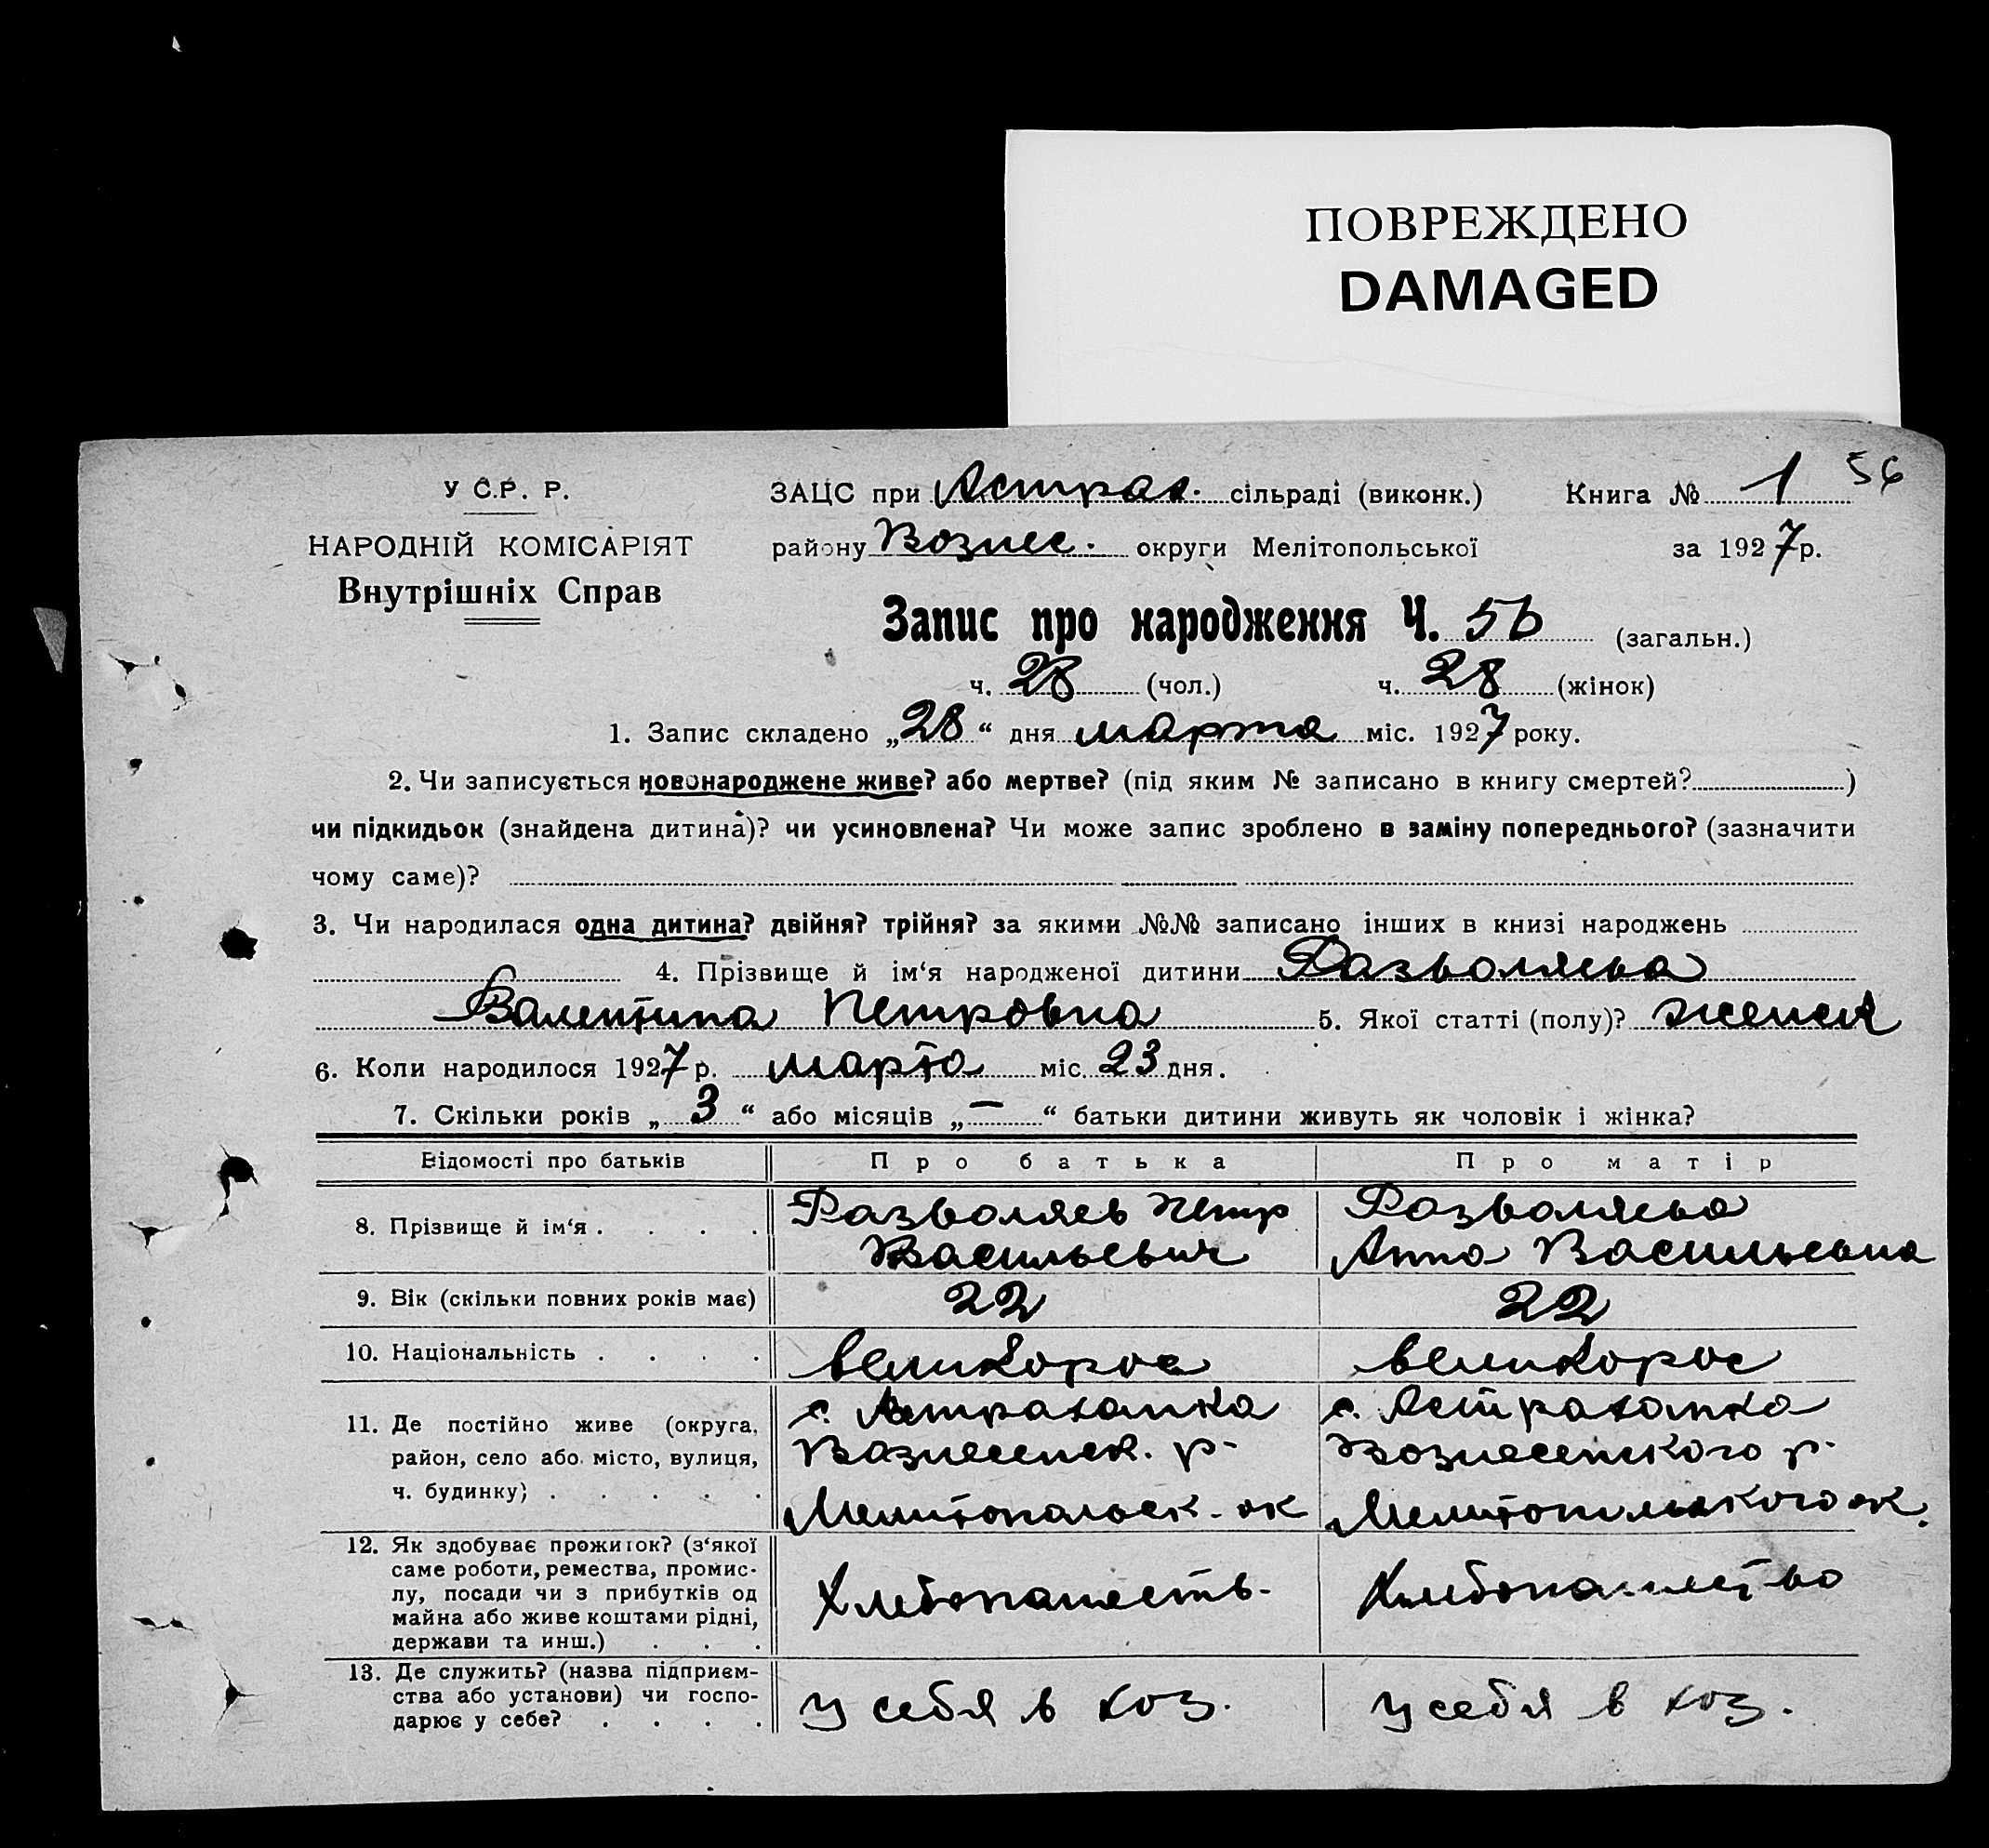 ПОВРЕЖДЕНО
DAMAGED
56
У С.Р. Р.
НАРОДНІЙ КОМІСАРІЯТ
Внутрішніх Справ
ЗАЦС при Астрах. сільраді (виконк.) Книга № 1
району Вознес. округи Мелітопольської за 1927 р.
Запис про народження Ч. 56 (загальн.)
ч. 28 (чол.) ч. 28 (жінок)
1. Запис складено „28“ дня марта міс. 1927 року.
2. Чи записується новонароджене живе? або мертве? (під яким № записано в книгу смертей? )
чи підкидьок (знайдена дитина)? чи усиновлена? Чи може запис зроблено в заміну попереднього? (зазначити
чому саме)?
3. Чи народилася одна дитина? двійня? трійня? за якими №№ записано інших в книзі народжень
4. Прізвище й ім‘я народженої дитини Разваляева
Валентина Петровна 5. Якої статті (полу)? женск
6. Коли народилося 1927 р. марта міс. 23 дня.
7. Скільки років „3“ або місяців „—“ батьки дитини живуть як чоловік і жінка?
Відомості про батьків Про батька Про матір
8. Прізвище й ім‘я . . . . Разваляев Петр Васильевич Разваляева Анна Васильевна
9. Вік (скільки повних років має) 22 22
10. Національність . . . . великорос великорос
11. Де постійно живе (округа, район, село або місто, вулиця, ч. будинку) . . . . . с. Астраханка Вознесенск. р- Мелитопольск. ок с. Астраханка Вознесенского р- Мелитопольского ок.
12. Як здобуває прожиток? (з‘якої саме роботи, ремества, промислу, посади чи з прибутків од майна або живе коштами рідні, держави та инш.) . . . Хлебопашеств. Хлебопашество
13. Де служить? (назва підприємства або установи) чи господарює у себе? . . . . у себя в хоз. у себя в хоз.